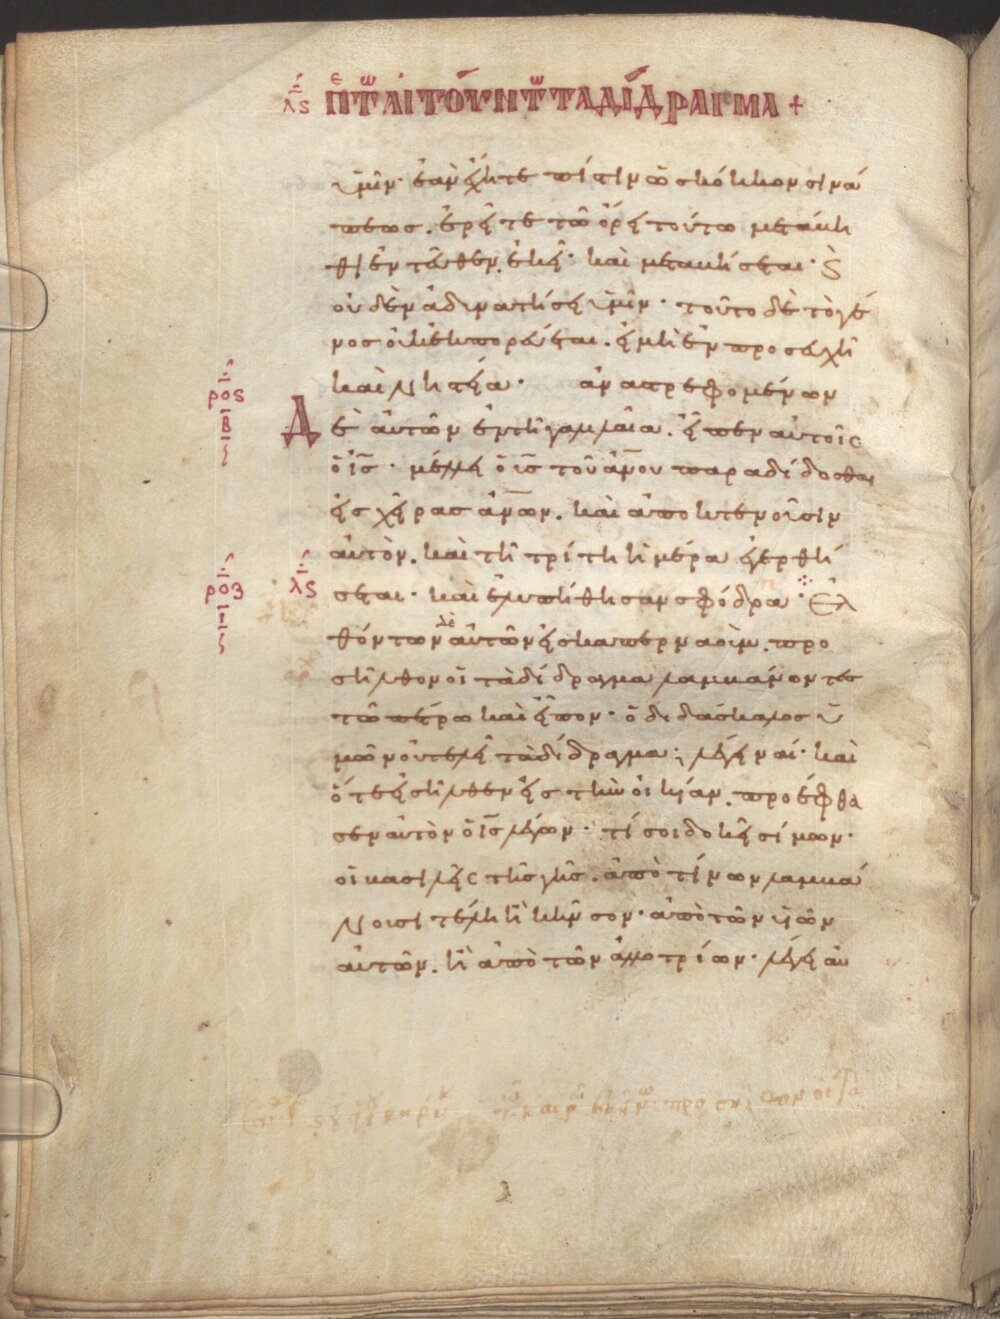 λϛ Π̅ε̅ Τῶ ΑἰΤΟΎΝΤῶ ΤΑ ΔΊΔΡΑΓΜΑ +
ὑμῖν· ἐὰν ἔχητε πίστιν ὡς κόκκον σινά
πεως. ἐρεῖτε τῶ ὄρει τούτω μετάβη
θι ἐντεῦθεν ἐκεῖ· καὶ μεταβήσεται· ϗ
οὐδὲν ἀδυνατήσει ὑμῖν· τοῦτο δὲ τὸ γέ
νος οὐκ ἐκπορεύεται. εἰ μὴ ἐν προσευχῆ
ροϛ καὶ νηστεία· ἀναστρεφομένων
β Δὲ αὐτῶν ἐν τῆ γαλιλαία. εἶπεν αὐτοῖς
ὁ ι̅ς̅· μέλλει ὁ υ̅ς̅ τοῦ α̅ν̅ου παραδίδοσθαι
εἰς χεῖρας α̅ν̅ων. καὶ ἀποκτενοῦσιν
αὐτὸν. καὶ τῆ τρίτη ἡμέρα ἐγερθή
ροζ λϛ σεται· καὶ ἐλυπήθησαν σφόδρα ⁘ Ἐλ
ι θόντων δὲ αὐτῶν εἰς καπερναούμ. προ
σῆλθον οἱ τὰ δίδραγμα λαμβάνοντες
τῶ πέτρω καὶ εἶπον· ὁ διδάσκαλος ὑ
μῶν οὐ τελεῖ τὰ δίδραγμα; λέγει ναί· καὶ
ὅτε εἰσῆλθεν εἰς τὴν οἰκίαν. προέφθα
σεν αὐτὸν ὁ ι̅ς̅ λέγων· τί σοι δοκεῖ σίμων·
οἱ βασιλεῖς τῆς γῆς. ἀπὸ τίνων λαμβά
νουσι τέλη ἢ κῆνσον· ἀπὸ τῶν υἱῶν
αὐτῶν. ἢ ἀπὸ τῶν ἀλλοτρίων· λέγει αὐ